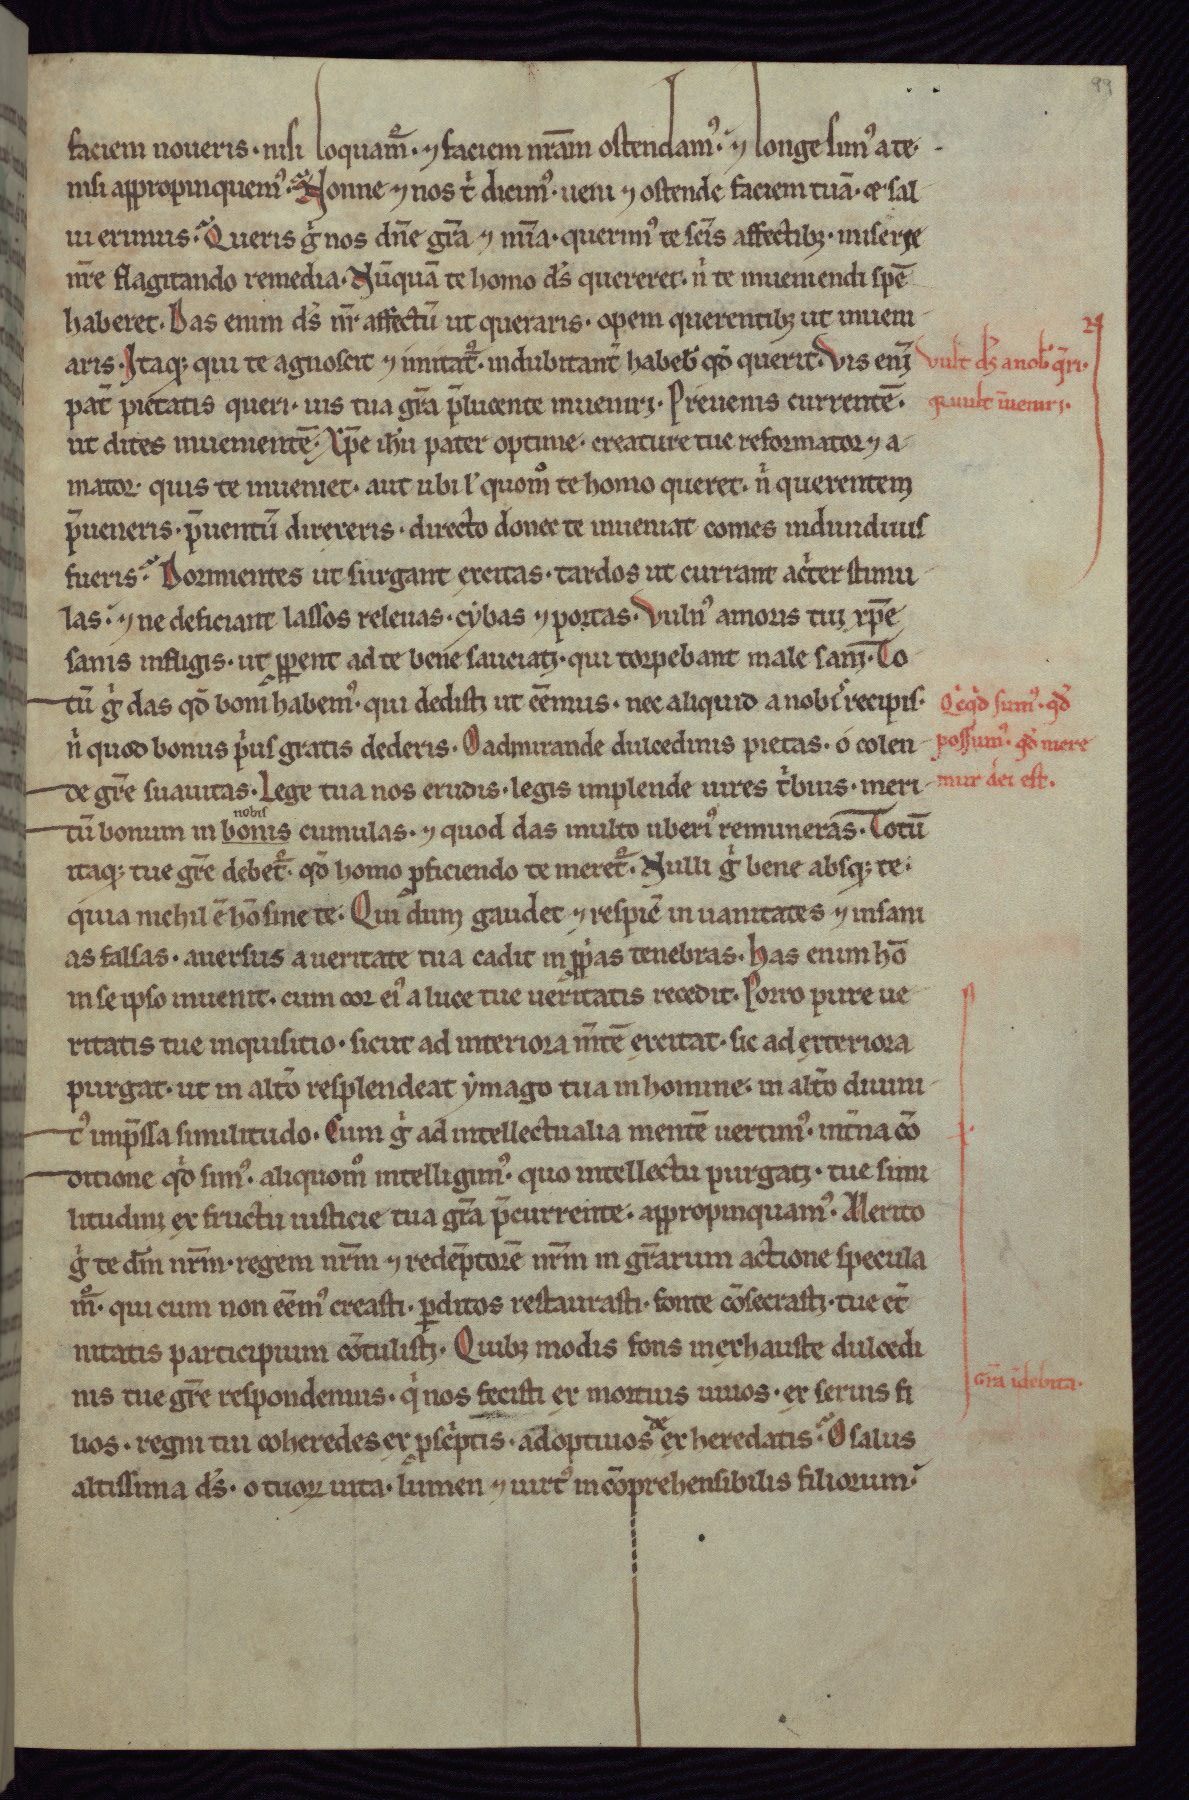 99
faciem noueris · nisi loquam᷑ · ⁊ faciem nr̄am ostendamꝰ · ⁊ longe simꝰ a te ·
nisi appropinquemꝰ · Nonne ⁊ nos t' dicimꝰ · ueni ⁊ ostende faciem tuā · & sal
ui erimus · Queris g̍ nos dn̄e gr̄a ⁊ mīa · querimꝰ te sc̄is affectibꝫ · miserie
nr̄e flagitando remedia · Nūquā te homo ds̄ quereret · n̍ te inueniendi spē
haberet · Das enim ds̄ nr̄ affectū ut queraris · opem querentibꝫ ut inueni
aris · Itaqꝫ qui te agnoscit ⁊ imitat᷑ · indubitant̄ habeb' qd̄ querit · Vis eni
pat̄ pietatis queri · uis tua gr̄a p̄lucente inueniri · Preuenis currentē ·
ut dites inuenientē · Xp̄e ih̄u pater optime · creature tue reformator ⁊ a
mator · quis te inueniet · aut ubi l' quom̊ te homo queret · n̍ querentem
p̄ueneris · p̄uentū direxeris · directo donec te inueniat comes indiuiduus
fueris · Dormientes ut surgant excitas · tardos ut currant acr̍ter stimu
las · ⁊ ne deficiant lassos releuas · cybas ⁊ portas · Vulnꝰ amoris tui xp̄e
sanis infligis · ut ꝓꝑent ad te bene sauciati · qui torpebant male sani · To
tū g̍ das qd̄ boni habemꝰ · qui dedisti ut eēmus · nec aliquid a nobis recipis ·
n̍ quod bonus p̍us gratis dederis · O admirande dulcedinis pietas · o colen
de gr̄e suauitas · Lege tua nos erudis · legis implende uires t̍buis · meri
nobis
tū bonum in bonis cumulas · ⁊ quod das multo uberiꝰ remuneras · Totū
itaqꝫ tue gr̄e debet᷑ · qd̄ homo ꝓficiendo te meret᷑ · Nulli g̍ bene absqꝫ te ·
quia nichil ē hō sine te · Qui dum gaudet ⁊ respic̄ in uanitates ⁊ insani
as falsas · auersus a ueritate tua cadit in ꝓp̍as tenebras · Has enim hō
in se ipso inuenit · cum cor eiꝰ a luce tue ueritatis recedit · Porro pure ue
ritatis tue inquisitio · sicut ad interiora mītē excitat · sic ad exteriora
purgat · ut in alto resplendeat ymago tua in homine · in alto diuini
tꝰ imp̄ssa similitudo · Cum g̍ ad intellectualia mentē uertimꝰ · int̄na cō
ditione qd̍ simꝰ · aliquom̊ intelligimꝰ · quo intellectu purgati · tue simi
litudini ex fructu iusticie tua gr̄a p̄currente · appropinquamꝰ · Merito
g̍ te dm̄ nr̄m · regem nr̄m ⁊ redēptorē nr̄m in gr̄arum actione specula
m᷑ · qui cum non eēmꝰ creasti · ꝑditos restaurasti · fonte cōsecrasti · tue et̄
nitatis participium cōtulisti · Quibꝫ modis fons inexhauste dulcedi
nis tue gr̄e respondemus · q̍ nos fecisti ex mortuis uiuos · ex seruis fi
lios · regni tui coheredes ex ꝓsc̍ptis · adoptiuos ex de heredatis · O salus
altissima ds̄ · o tuoꝝ uita · lumen ⁊ uirtꝰ incōprehensibilis filiorum ·
Vult ds̄ a nob' q̄ri ·
q̍ uult īueniri ·
Q̍cq̍d sumꝰ · qd̄
possumꝰ · qd̄ mere
mur dei est ·
Gr̄a īdebita ·